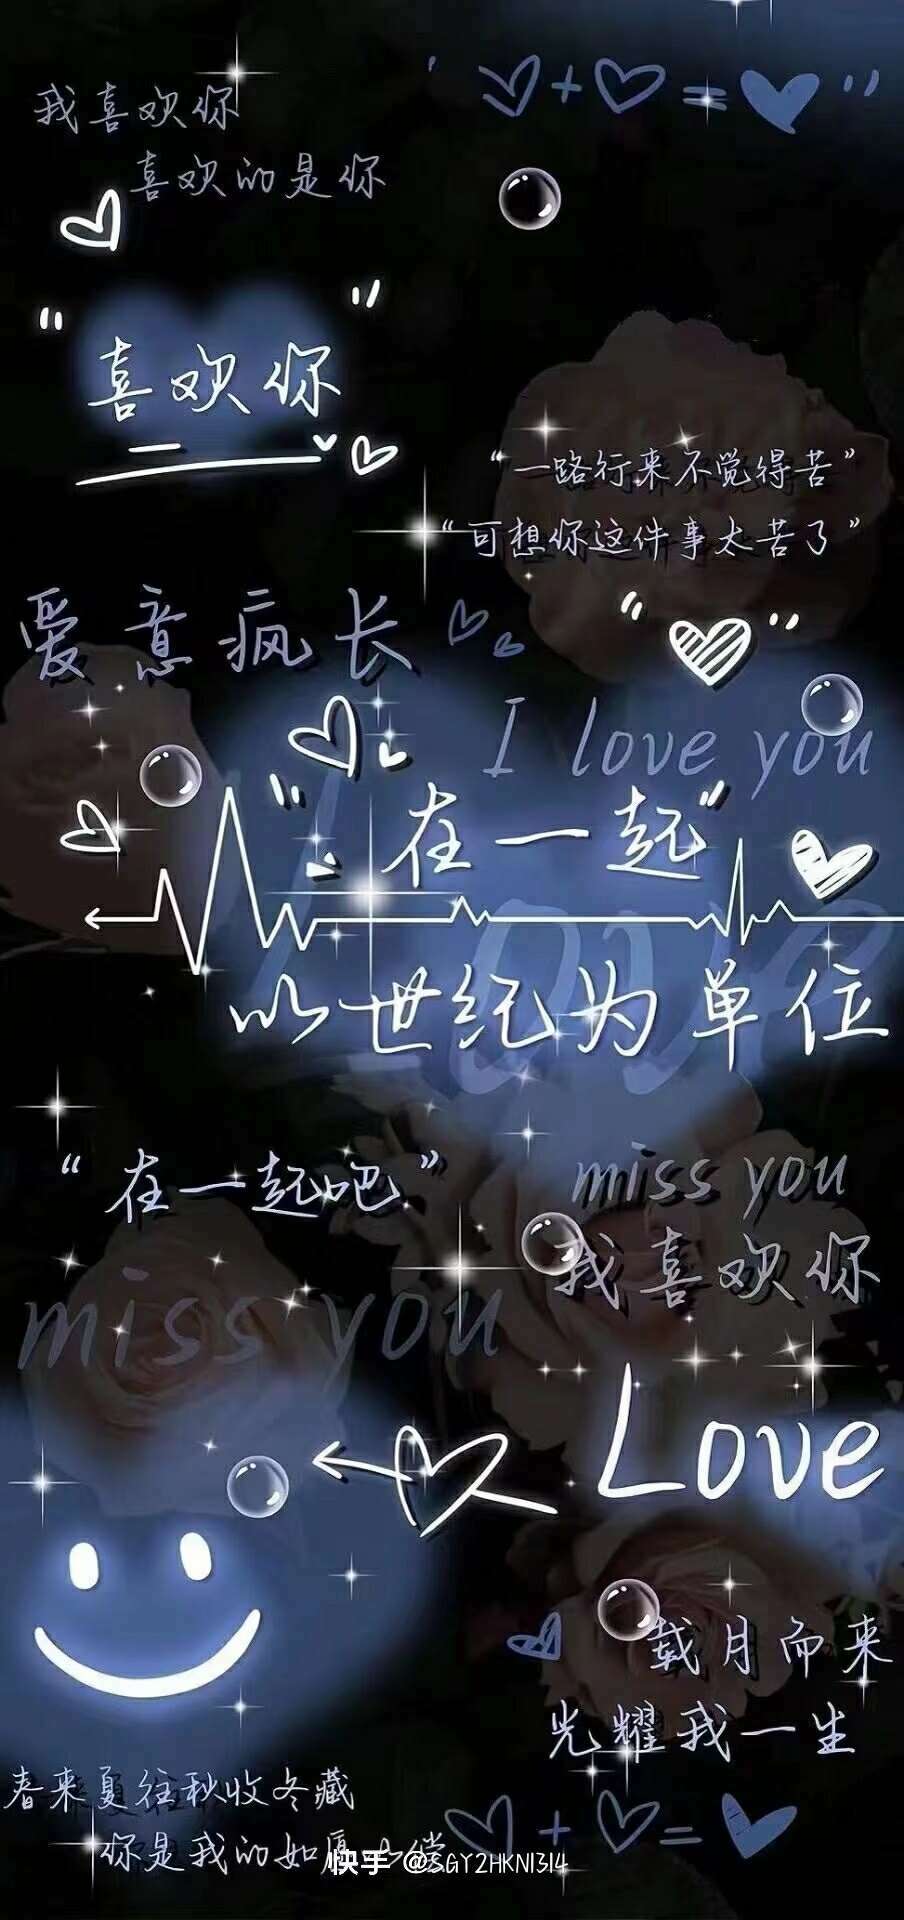 我喜欢你
喜欢的是你
“喜欢你”
“一路行来不觉得苦”
“可想你这件事太苦了”
爱意疯长
I love you
“在一起”
Love
以世纪为单位
“在一起吧”
miss you
我喜欢你
miss you
Love
载月而来
光耀我一生
春来夏往秋收冬藏
你是我的如
快手 @SGY2HKN1314